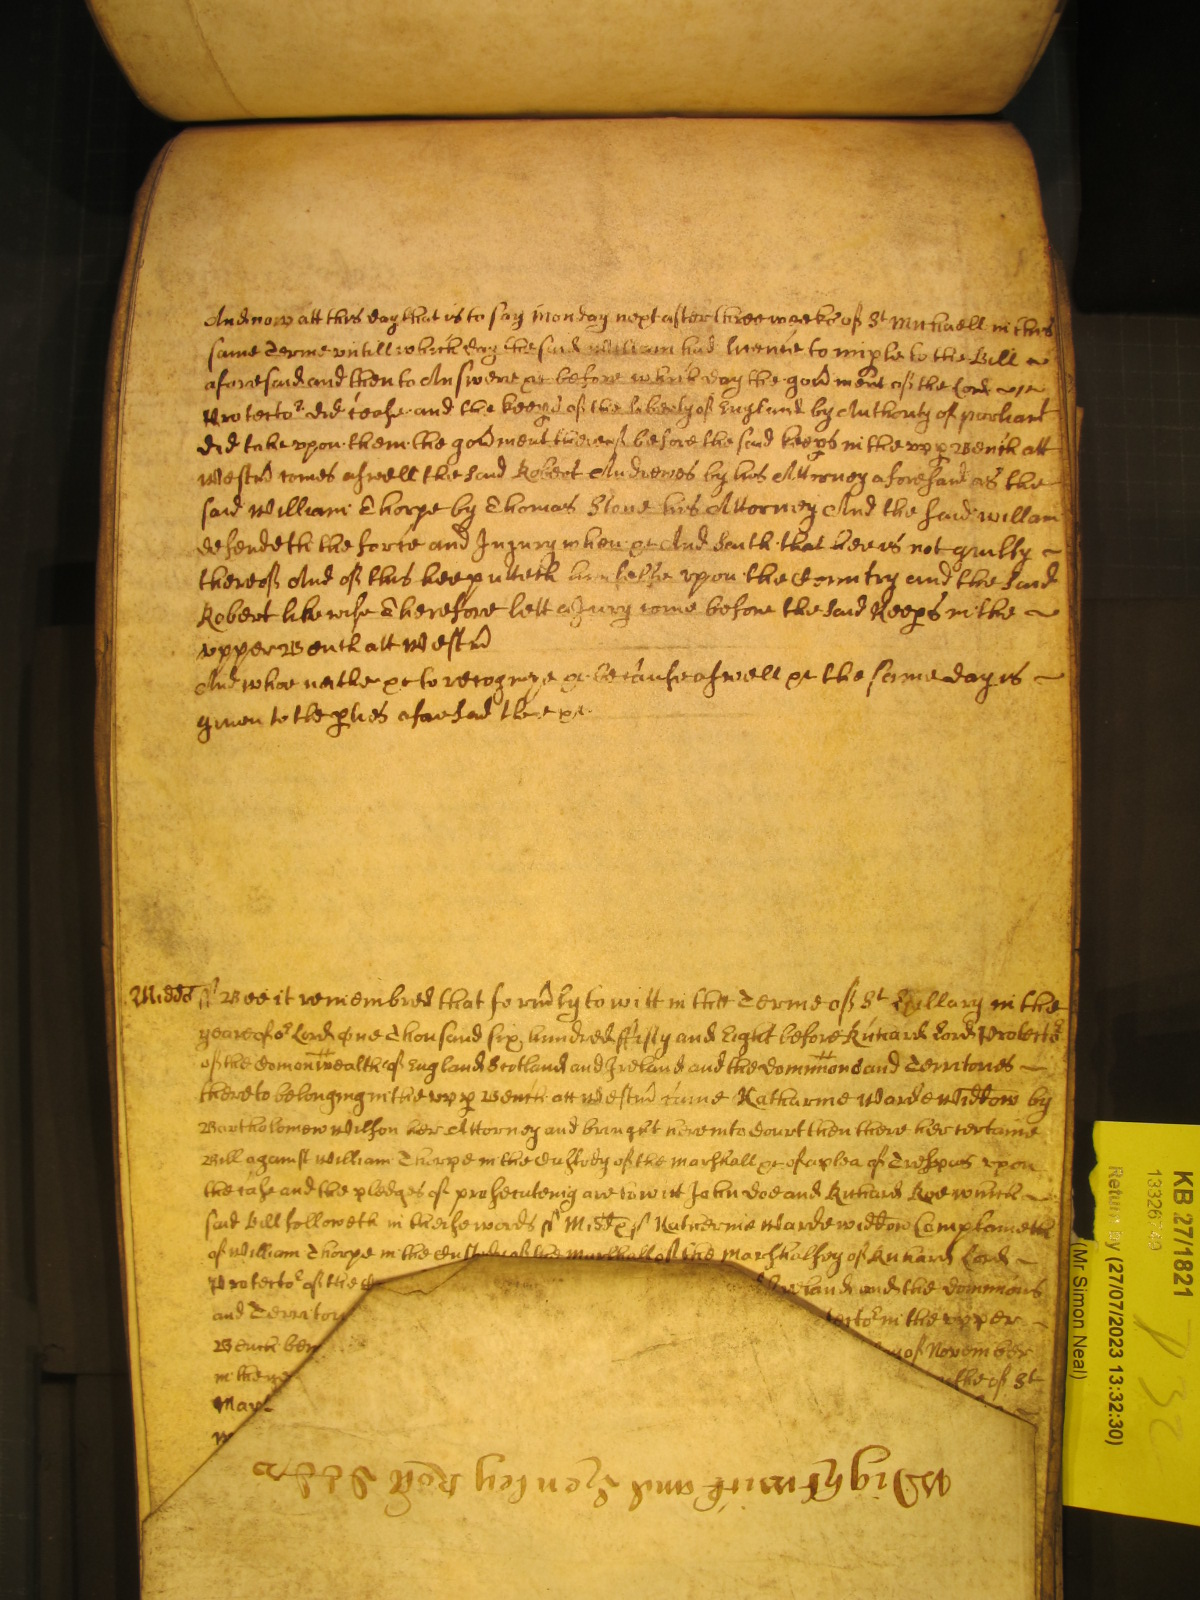 And now att this day that is to say Monday next after three weeks of St Michaell in this
same Terme untill which day the said William had licence to imple to the Bill
aforesaid and then to Answere &c before which day the govment of the Lord
Protector did cease and the keeps of the liberty of England by Authority of parliamt
did take upon them the govment thereof before the said keeps in the upp Bench att
Westm comes aswell the said Robert Andrewes by his Attorney aforesaid as the
said William Thorpe by Thomas Stone his Attorney And the said william
defendeth the force and Injury when &c And saith that hee is not guilty
thereof And of this hee putteth himselfe upon the Country and the said
Robert likewise Therefore lett a Jury come before the said Keeps in the
upper Bench att Westm
And whoe neither &c to recognize &c because aswell &c the same day is
given to the pties aforesaid there &c
Midds ss Bee it remembred that formly to witt in the Terme of St Hillary in the
yeare of or Lord One Thousand six hundred fifty and Eight before Richard Lord Protector
of the Comonwealth of England Scotland and Ireland and the Dominions and Territories
thereto belonging in the upp Bench att Westm came Katharine Warde Widdow by
Bartholomew Wilson her Attorney and brought here into Court then there her certaine
Bill against William Thorpe in the Custody of the marshall &c of a plea of Trespas upon
the case and the pledges of prosecuteing are to witt John Doe and Richard Roe which
said Bill followeth in theise words ss Midds ss Katherine Warde widdow Complaineth
of William Thorpe in the Custody of the marshall of the Marshalsey of Richard Lord
Protector of the Ireland and the Dominions
and Territor in the upper
Bench of November
in the of St
Mar
Wightwick and Henley Roll
KB 27/1821
13326740
Return by (27/07/2023 13:32:30)
(Mr Simon Neal)